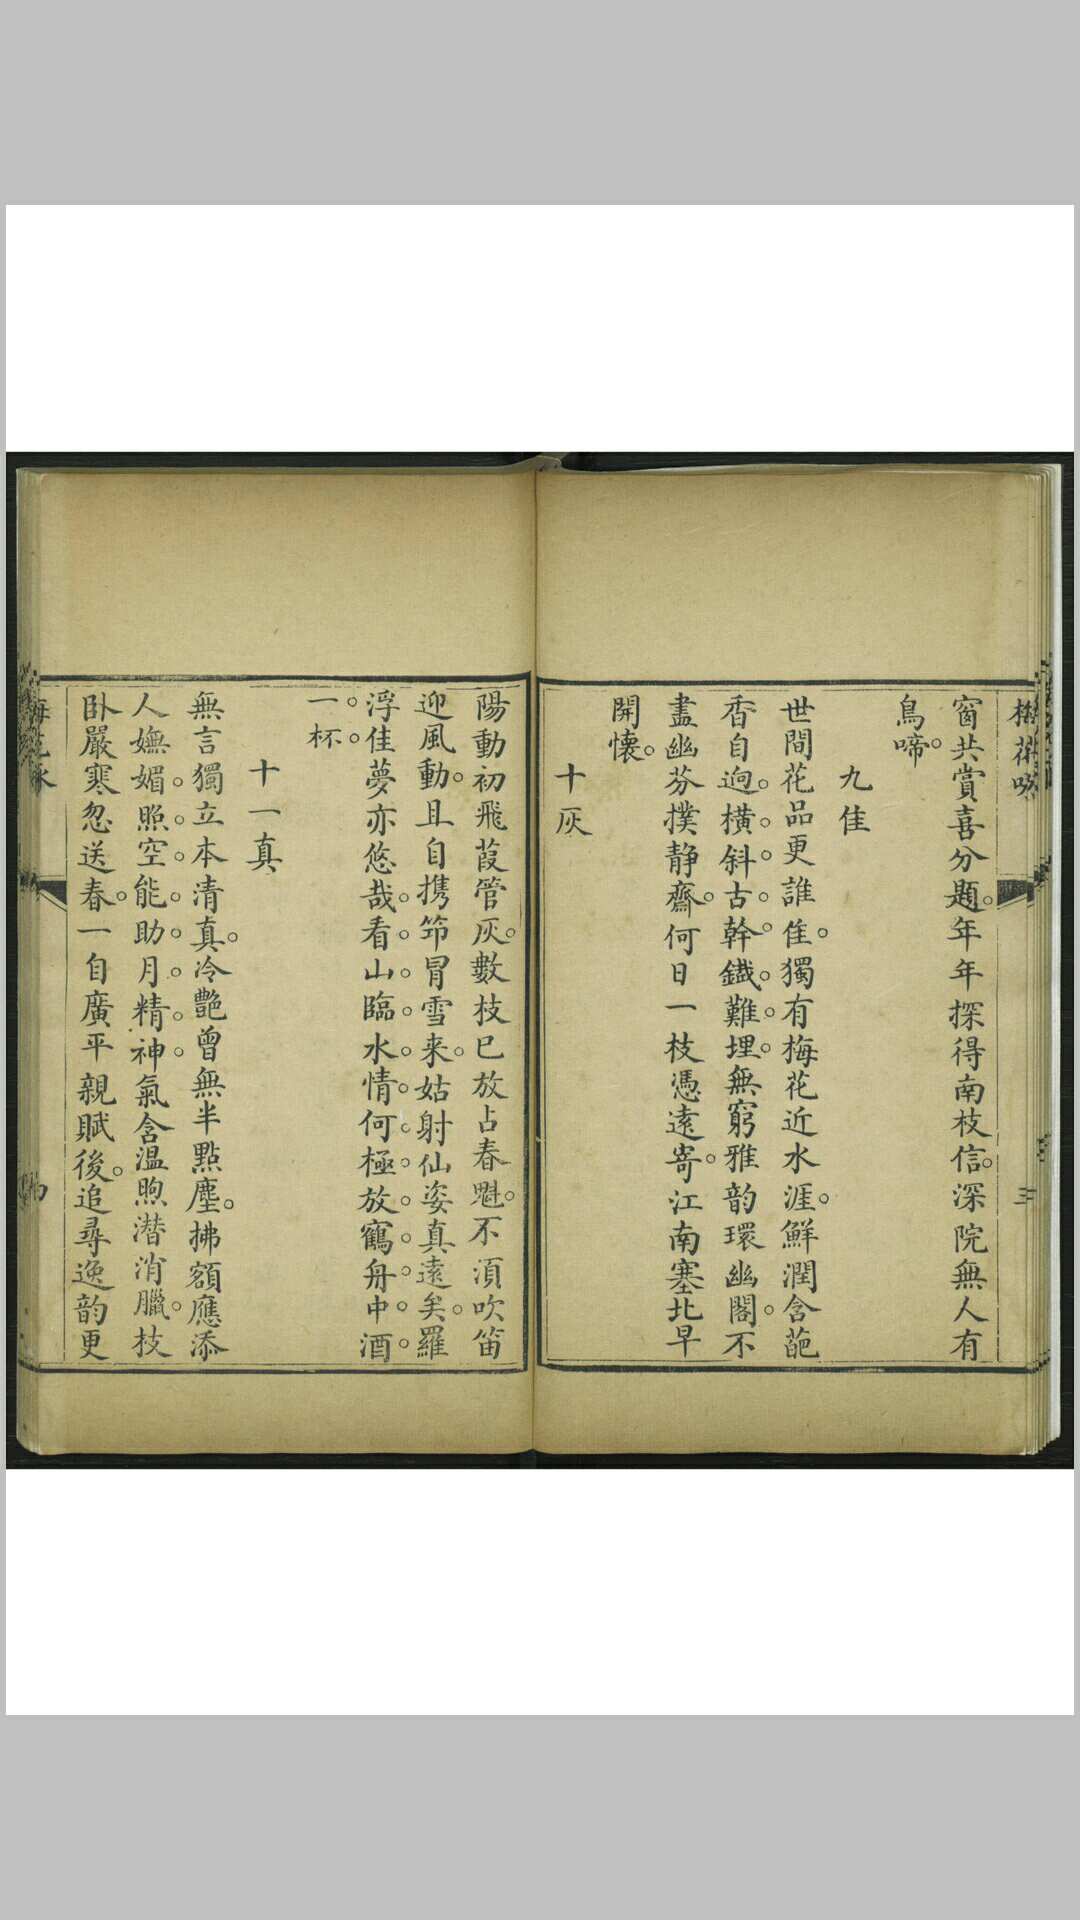 梅花
三
窗共賞喜分題。年年探得南枝信。深院無人有
鳥啼。
九佳
世間花品更誰佳。獨有梅花近水涯。鮮潤含葩
香自逈。橫斜古幹鐵難埋。無窮雅韵環幽閣。不
盡幽芬撲静齋。何日一枝憑遠寄。江南塞北早
開懷。
十灰
陽動初飛葭管灰。數枝已放占春魁。不湏吹笛
迎風動。且自携筇冒雪来。姑射仙姿真遠矣。羅
浮佳夢亦悠哉。看山臨水情何極。放鶴舟中酒
一杯。
十一真
無言獨立本清真。冷艷曾無半點塵。拂額應添
人嫵媚。照空能助月精神。氣含温煦潜消臘。枝
卧嚴寒忽送春。一自廣平親賦後。追尋逸韵更